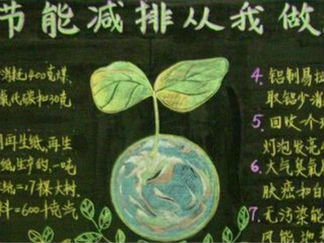 节能减排从我做
消耗400克煤、
氧化碳和30克
用再生纸,再生
纸生产的,一吨
=17棵大树
料=600千克
4. 铝制易拉
取铝少消
5. 回收一个
灯泡发亮
6. 大气臭氧
肤癌和白
7. 无污染能
风能